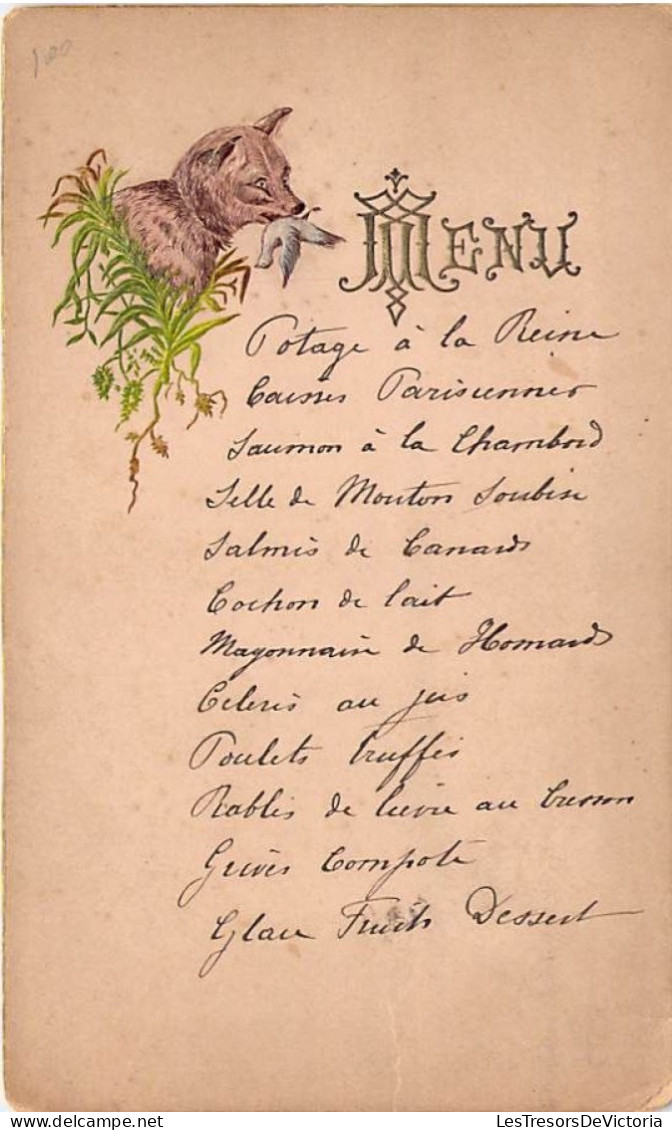 MENU
Potage à la Reine
Caisses Parisiennes
Saumon à la Chambord
Selle de Mouton Soubise
Salmis de Canards
Cochon de lait
Mayonnaise de Homards
Celeris au jus
Poulets truffés
Rables de lievre au Cresson
Grives Compote
Glace Fruits Dessert
LesTresorsDeVictoria